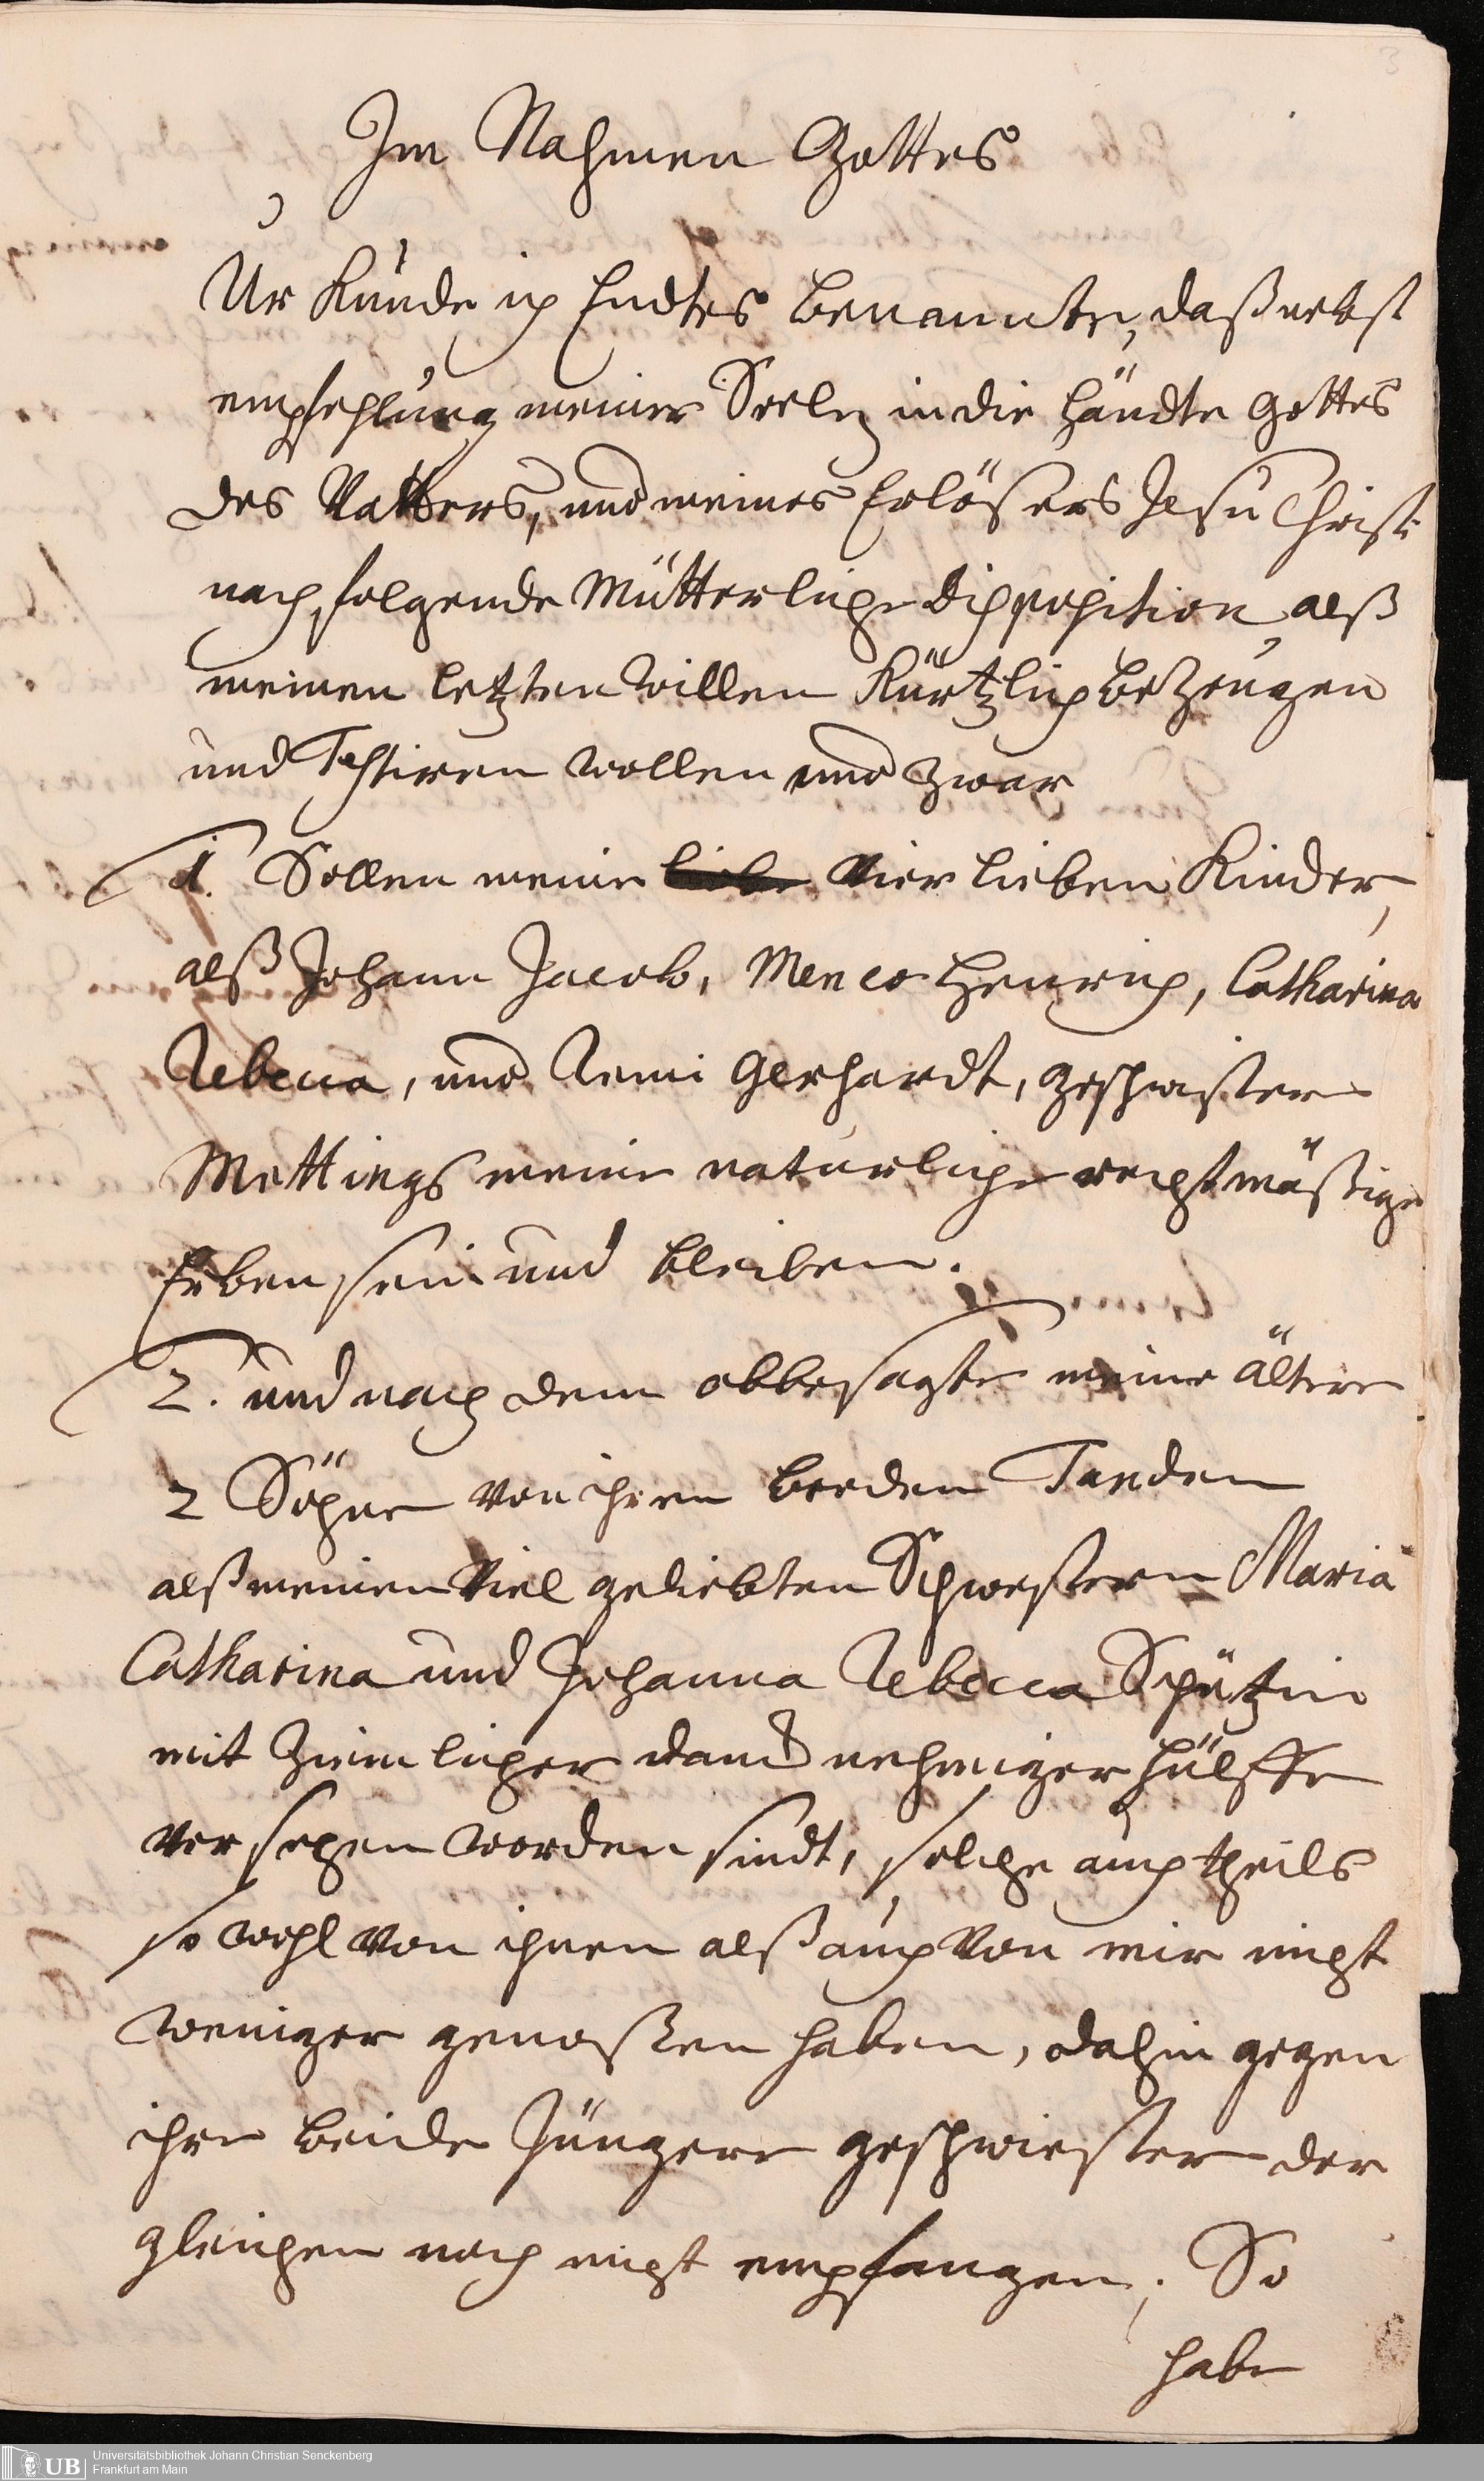 3
Im Nahmen Gottes
Urkunde ich Endtes benannte, daß nebst
empfehlung meiner Seelen in die Händte Gottes
des Vatters, und meines Erlösers Jesu Christi
nachfolgende Mütterliche Disposition alß
meinen letzten Willen Kürtzlich beZeugen
und Testiren wollen und zwar
1. Sollen meine liebe Vier lieben Kinder,
alß Johann Jacob, Menco Henrich, Catharina
Rebecca, und Remi Gerhardt, geschwister
Mettings meine naturliche rechtmäßige
Erben sein und bleiben.
2. und nach dem obbesagte meine ältere
2 Söhne von ihren beeden Tanden
alß meinen Viel geliebten Schwestern Maria
Catharina und Johanna Rebecca Schützin
mit ziemlicher danck nehmiger Hülffe
versehen worden sindt, solche auch theils
so wohl von ihnen alß auch von mir nicht
weniger genoßen haben, dahin gegen
ihre beide Jüngere geschwiester der
gleichen noch nicht empfangen; So
habe
UB
Universitätsbibliothek Johann Christian Senckenberg
Frankfurt am Main